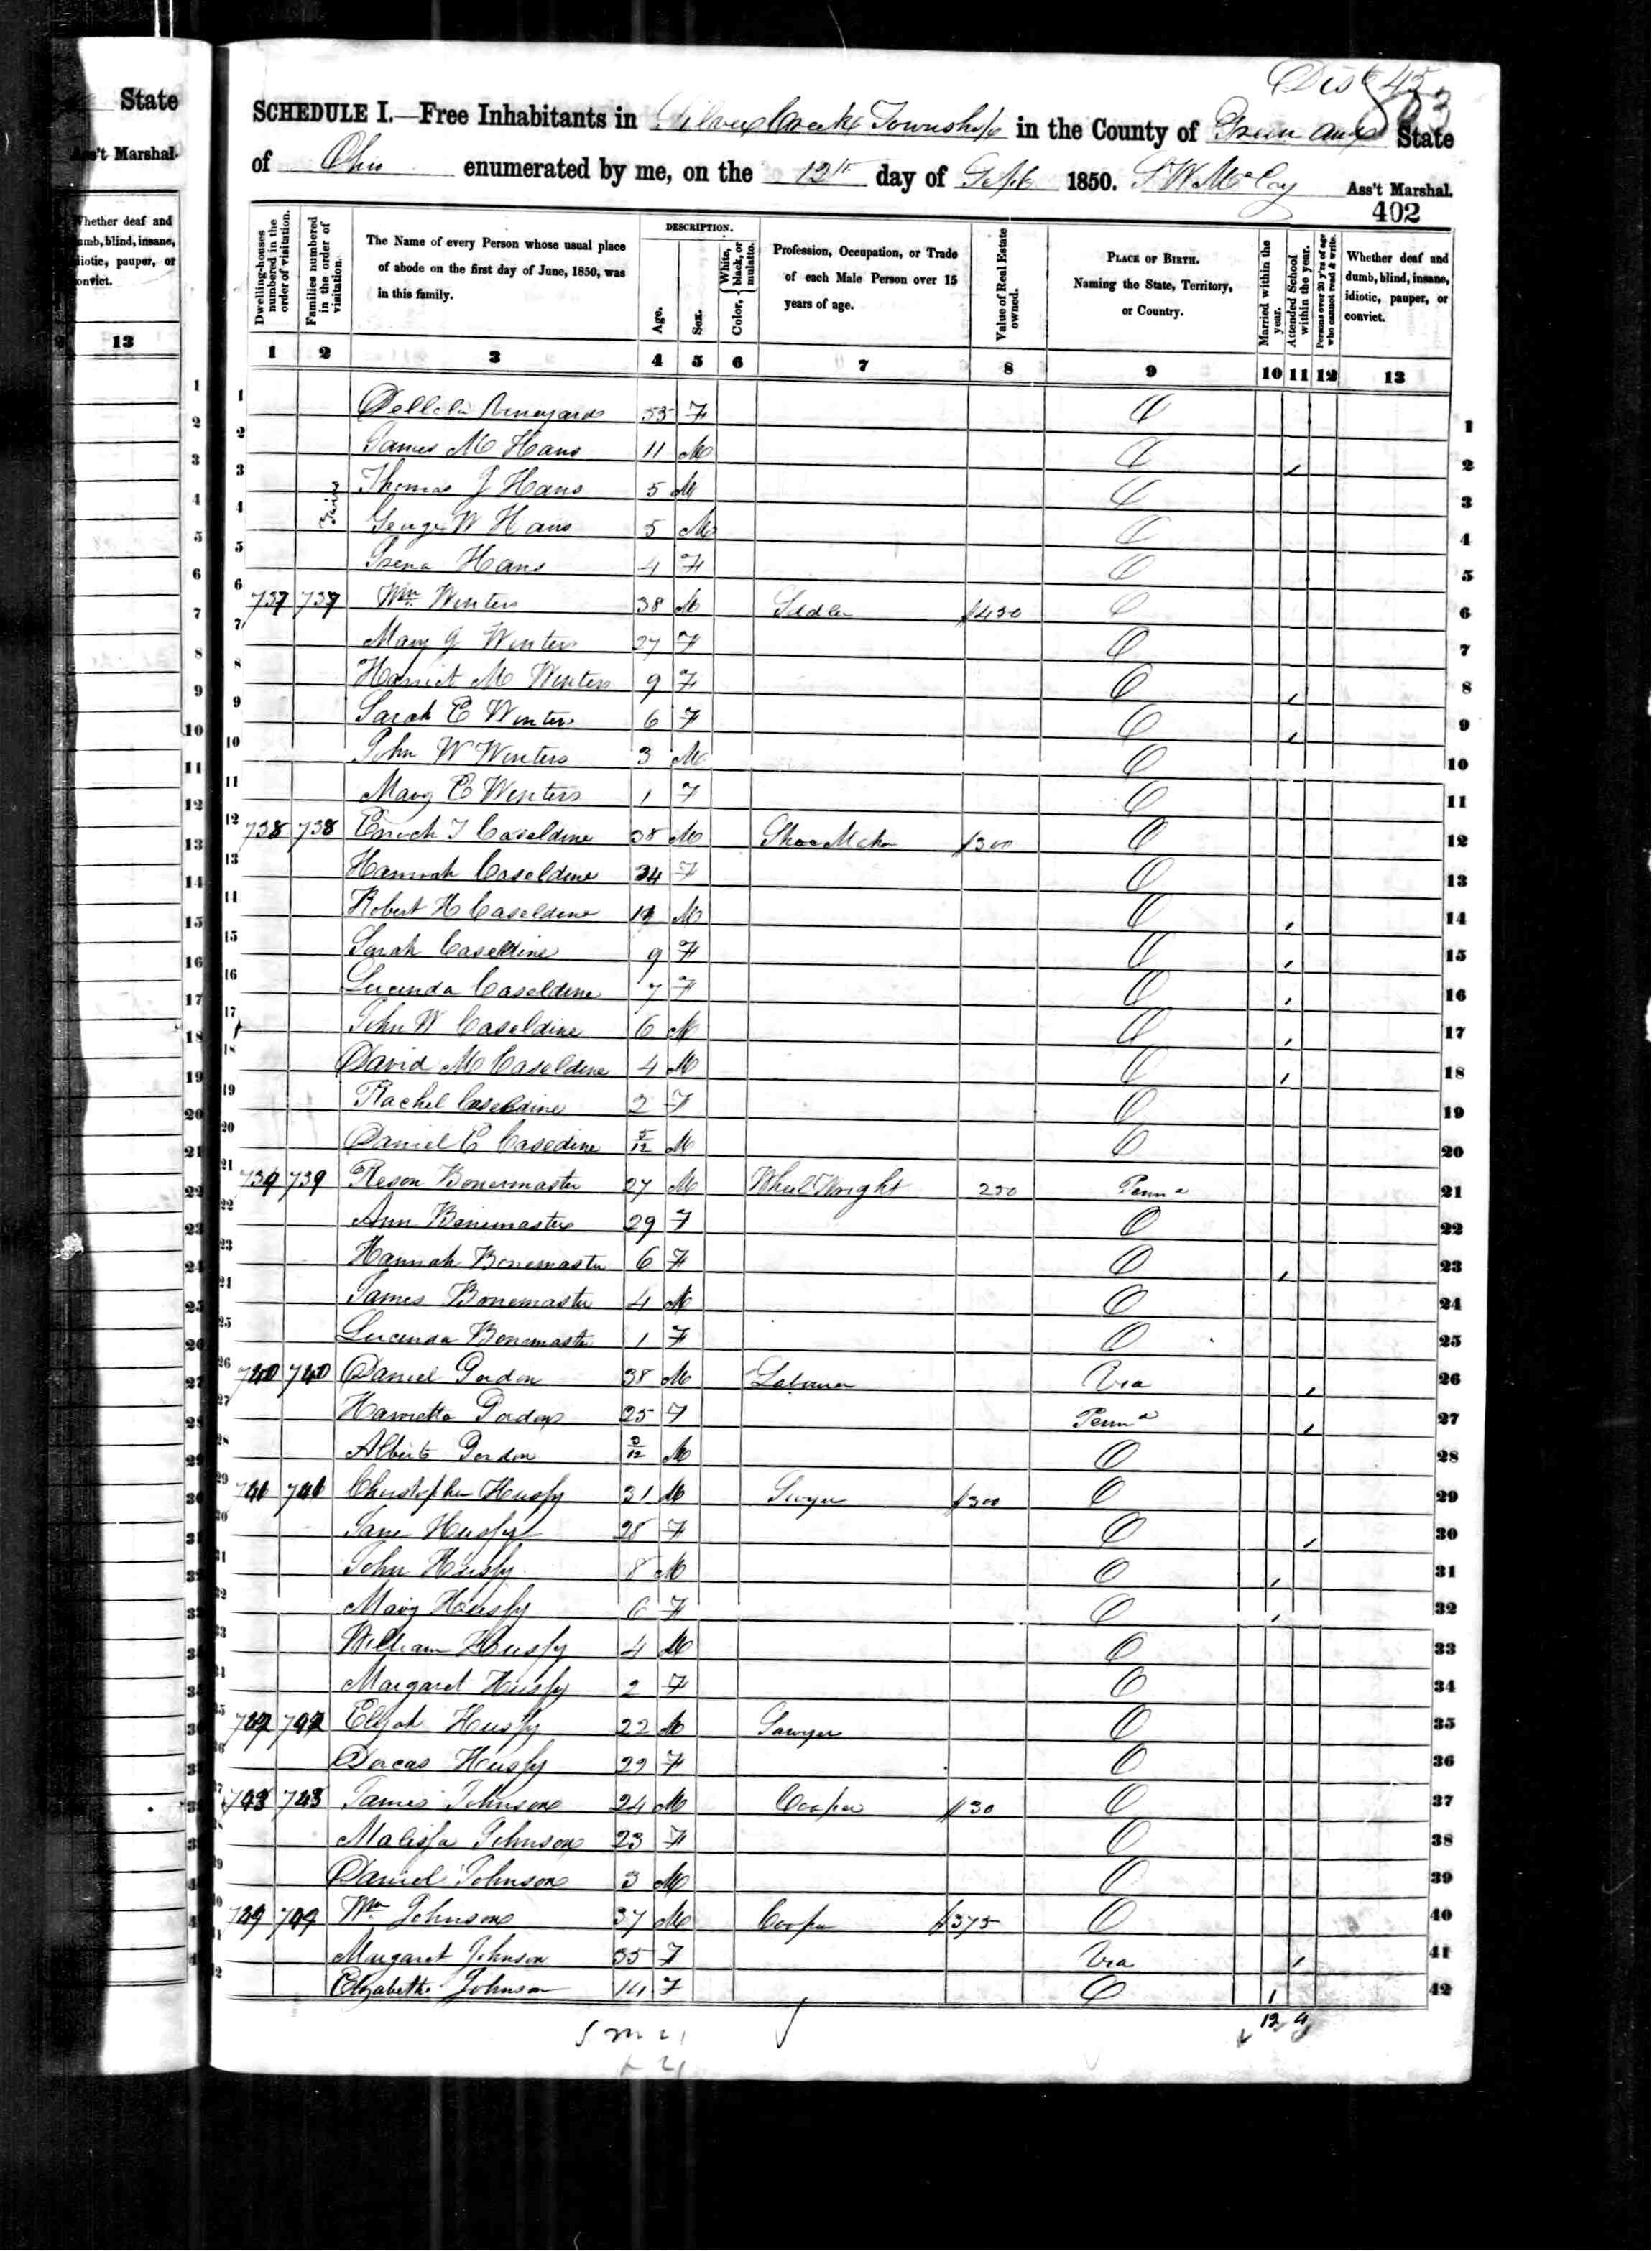 State
Ass't Marshal.
Whether deaf and
dumb, blind, insane,
idiotic, pauper, or
convict.
13
Dist 45
803
SCHEDULE I.—Free Inhabitants in Silver Creek Township in the County of Green and State
of Ohio enumerated by me, on the 12th day of Sept 1850. Ass't Marshal.
402
Dwelling-houses numbered in the order of visitation.
Families numbered in the order of visitation.
The Name of every Person whose usual place of abode on the first day of June, 1850, was in this family.
DESCRIPTION.
Age.
Sex.
Color, { White, black, or mulatto.
Profession, Occupation, or Trade of each Male Person over 15 years of age.
Value of Real Estate owned.
PLACE OF BIRTH. Naming the State, Territory, or Country.
Married within the year.
Attended School within the year.
Persons over 20 y'rs of age who cannot read & write.
Whether deaf and dumb, blind, insane, idiotic, pauper, or convict.
1 2 3 4 5 6 7 8 9 10 11 12 13
1 53 F O 1
2 James M Hans 11 M O 2
3 Thomas J Hans 5 M O 3
4 George W Hans 5 M O 4
5 Hans 4 F O 5
6 737 737 Wm Winters 38 M Sadler $450 O 6
7 Mary J Winters 27 F O 7
8 Harriet M Winters 9 F O 8
9 Sarah E Winters 6 F O 9
10 John W Winters 3 M O 10
11 Mary E Winters 1 F O 11
12 738 738 Enoch T Caseldine 38 M Shoe Maker $300 O 12
13 Hannah Caseldine 34 F O 13
14 Robert H Caseldine M O 14
15 Sarah Caseldine 9 F O 15
16 Lucinda Caseldine 7 F O 16
17 John W Caseldine 6 M O 17
18 David M Caseldine 4 M O 18
19 Rachel Caseldine 2 F O 19
20 Daniel E Casedine 5/12 M O 20
21 739 739 Reson Bonermaster 27 M Wheel Wright 250 Penna 21
22 Ann Bonemaster 29 F O 22
23 Hannah Bonemaster 6 F O 23
24 James Bonemaster 4 M O 24
25 Lucinda Bonemaster 1 F O 25
26 740 740 Daniel Gordon 38 M Laborer Via 26
27 Harrietta Gordon 25 F Penna 27
28 Gordon M O 28
29 741 741 Christopher 31 M Sawyer $300 O 29
30 Jane 28 F O 30
31 John 8 M O 31
32 Mary 6 F O 32
33 William 4 M O 33
34 Margaret 2 F O 34
35 742 742 Elijah 22 M Sawyer O 35
36 Dorcas F O 36
37 743 743 James Johnson 24 M Cooper $30 O 37
38 Malissa Johnson 23 F O 38
39 Daniel Johnson 3 M O 39
40 Wm Johnson 37 M Cooper $375 O 40
41 Margaret Johnson 35 F Via 41
42 Elizabeth Johnson 14 F O 42
12